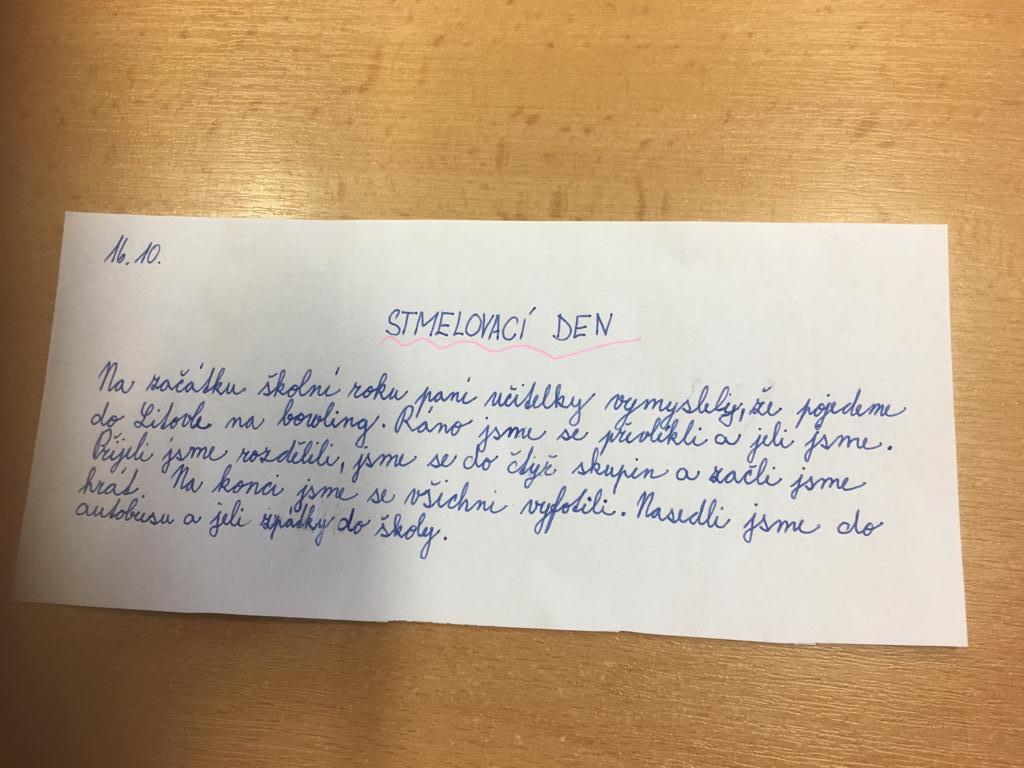 16.10.
STMELOVACÍ DEN
Na začátku školní roku paní učitelky vymyslely, že pojedeme
do Litovle na bowling. Ráno jsme se převlíkli a jeli jsme.
Přijeli jsme rozdělili, jsme se do čtyř skupin a začli jsme
hrát. Na konci jsme se všichni vyfotili. Nasedli jsme do
autobusu a jeli zpátky do školy.